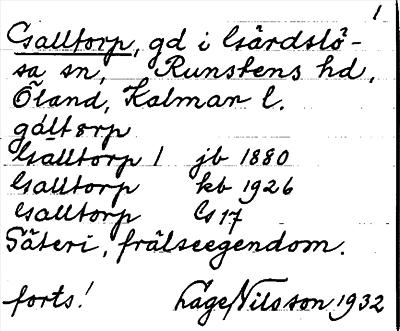 1
Galltorp, gd i Gärdslö-
sa sn, Runstens hd,
Öland, Kalmar l.
gáltorp
Galltorp 1 jb 1880
Galltorp kb 1926
Galltorp Gs 17
Säteri, frälseegendom.
forts! Låge Nilsson 1932